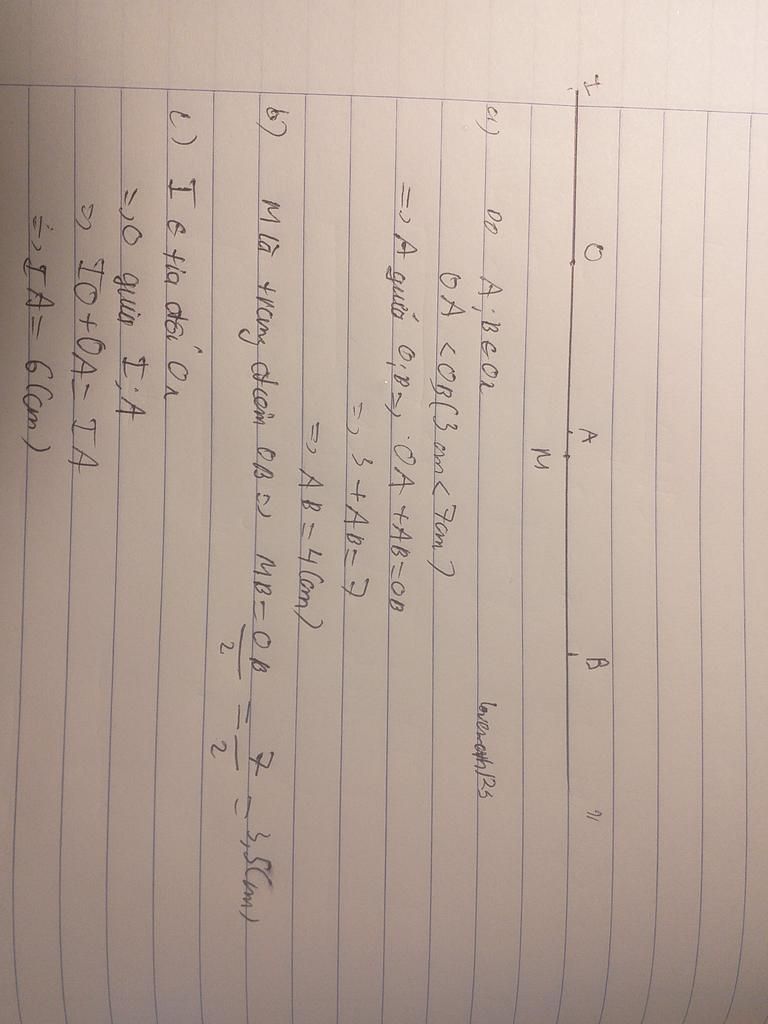 I O A M B x
a) Do A; B ∈ Ox
OA < OB (3 cm < 7cm)
=> A giữa O; B => OA + AB = OB
=> 3 + AB = 7
=> AB = 4 (cm)
lovemath123
b) M là trung điểm OB => MB = OB/2 = 7/2 = 3,5 (cm)
c) I ∈ tia đối Ox
=> O giữa I; A
=> IO + OA = IA
=> IA = 6 (cm)